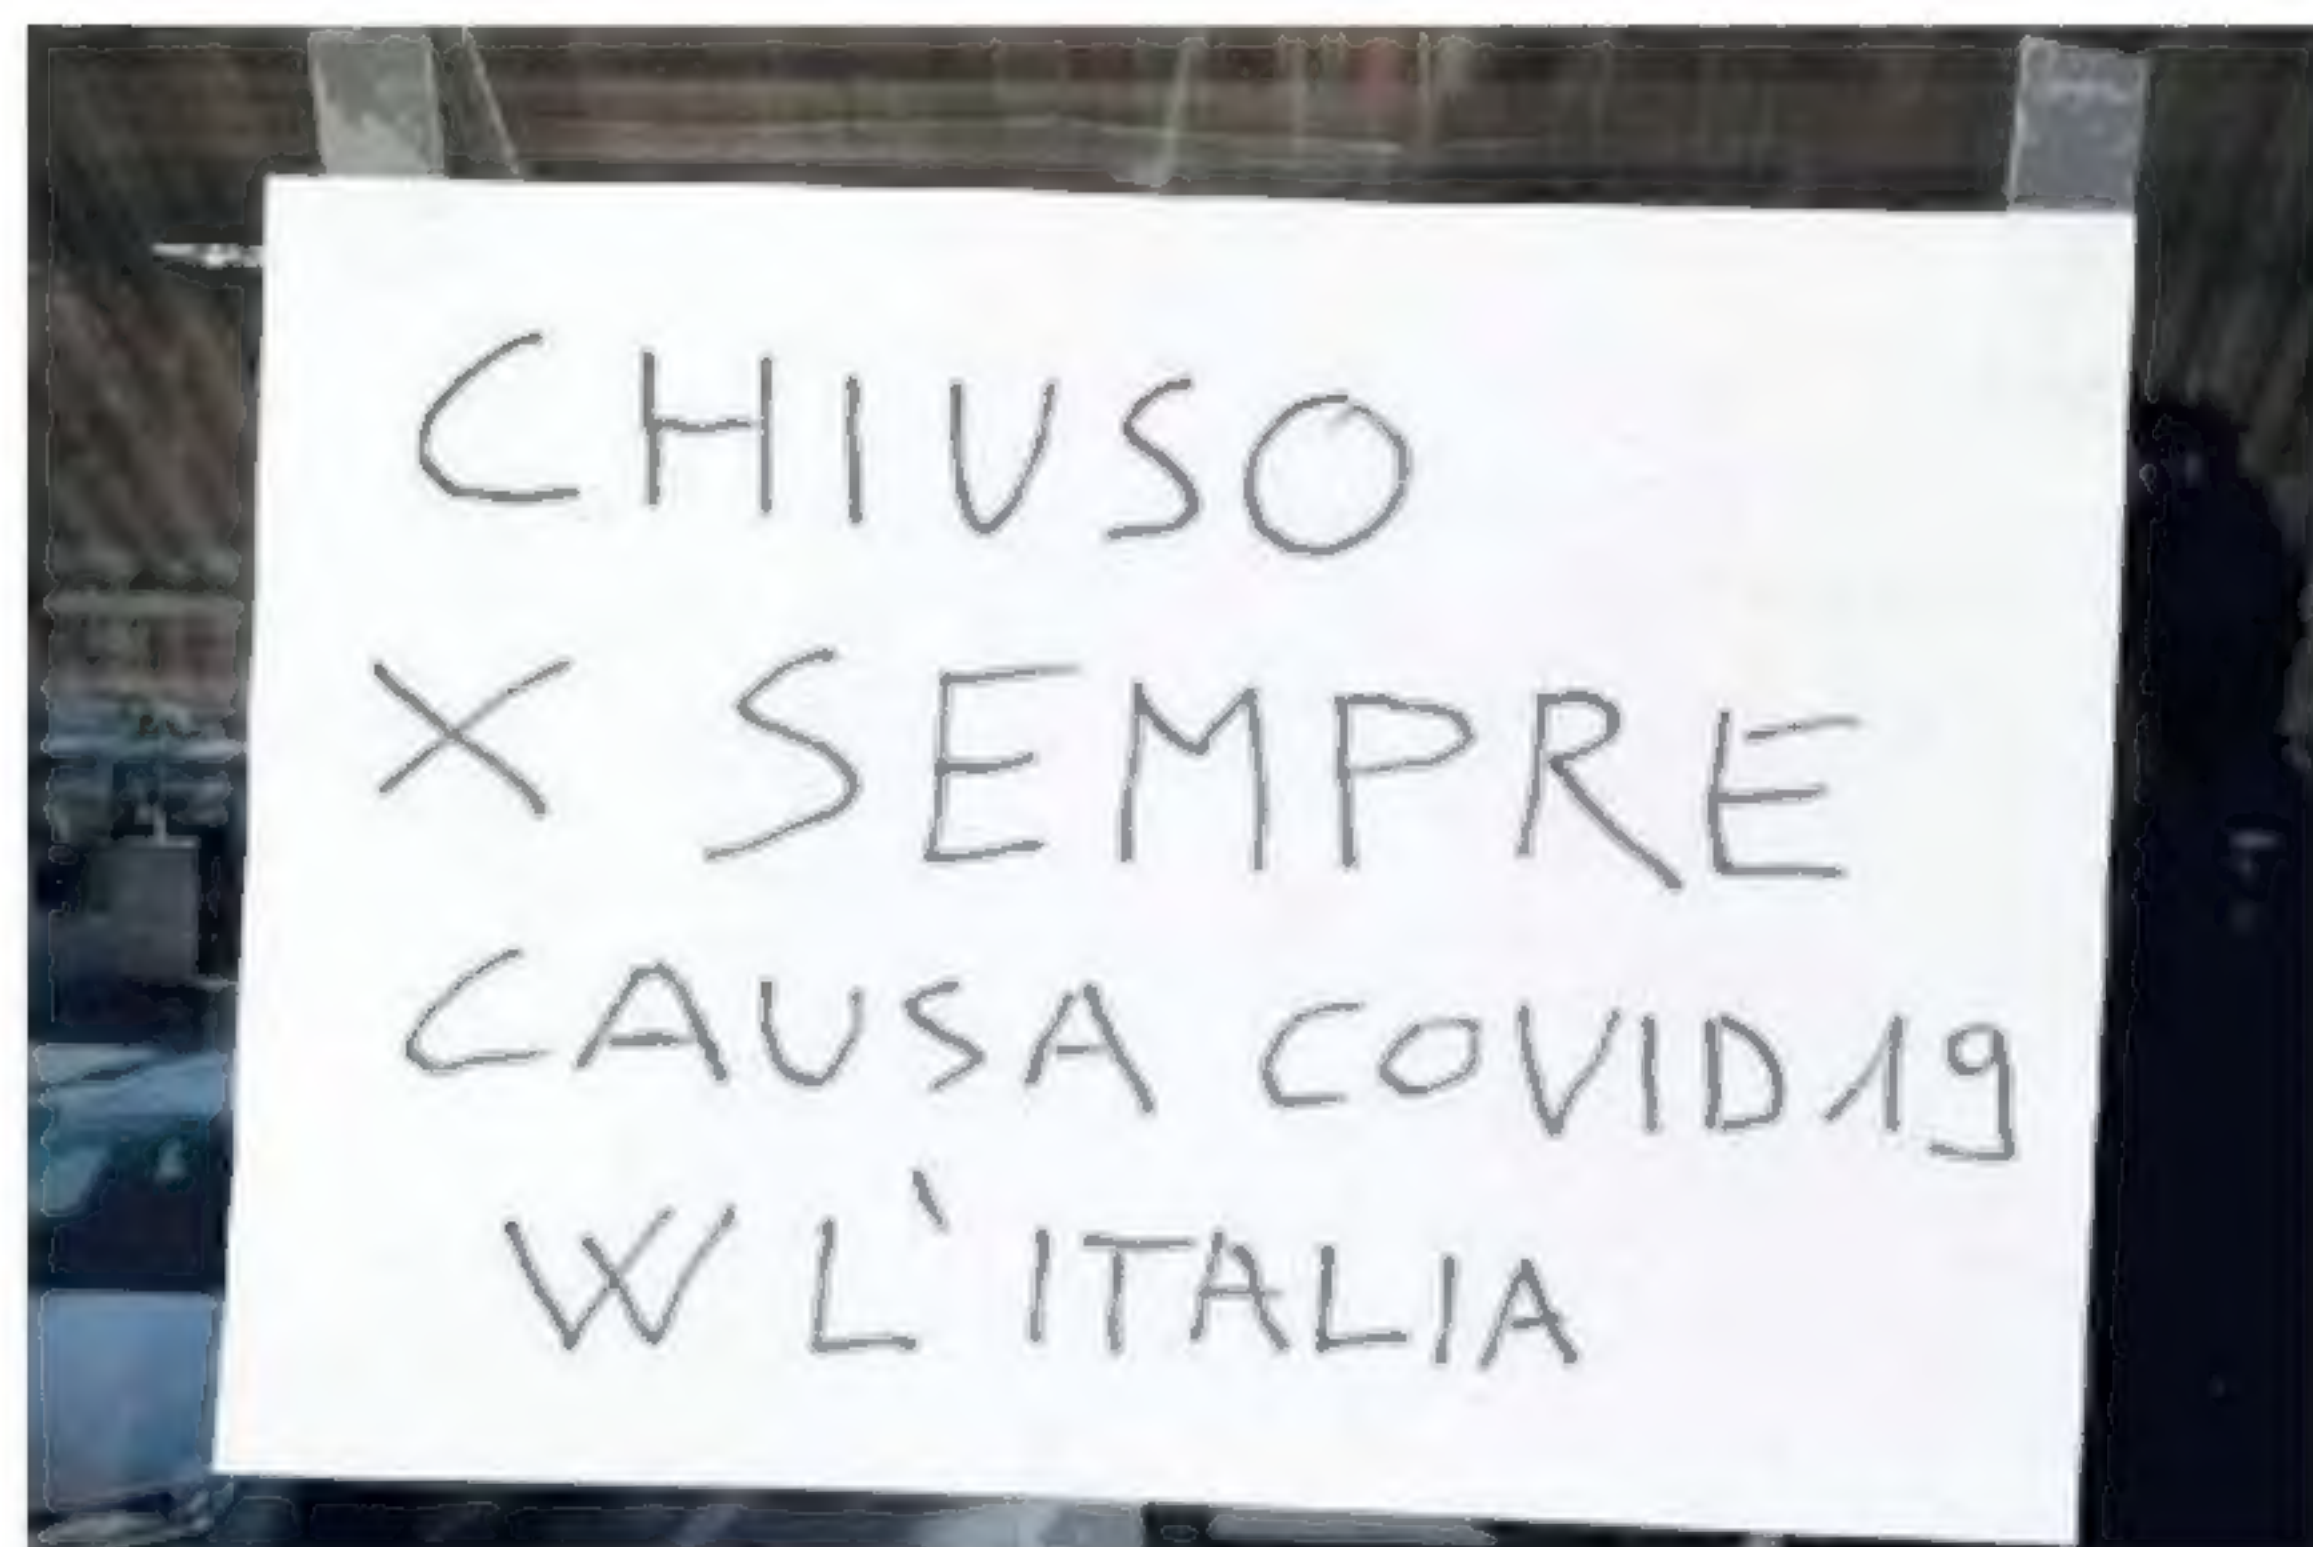 CHIUSO
X SEMPRE
CAUSA COVID19
W L'ITALIA